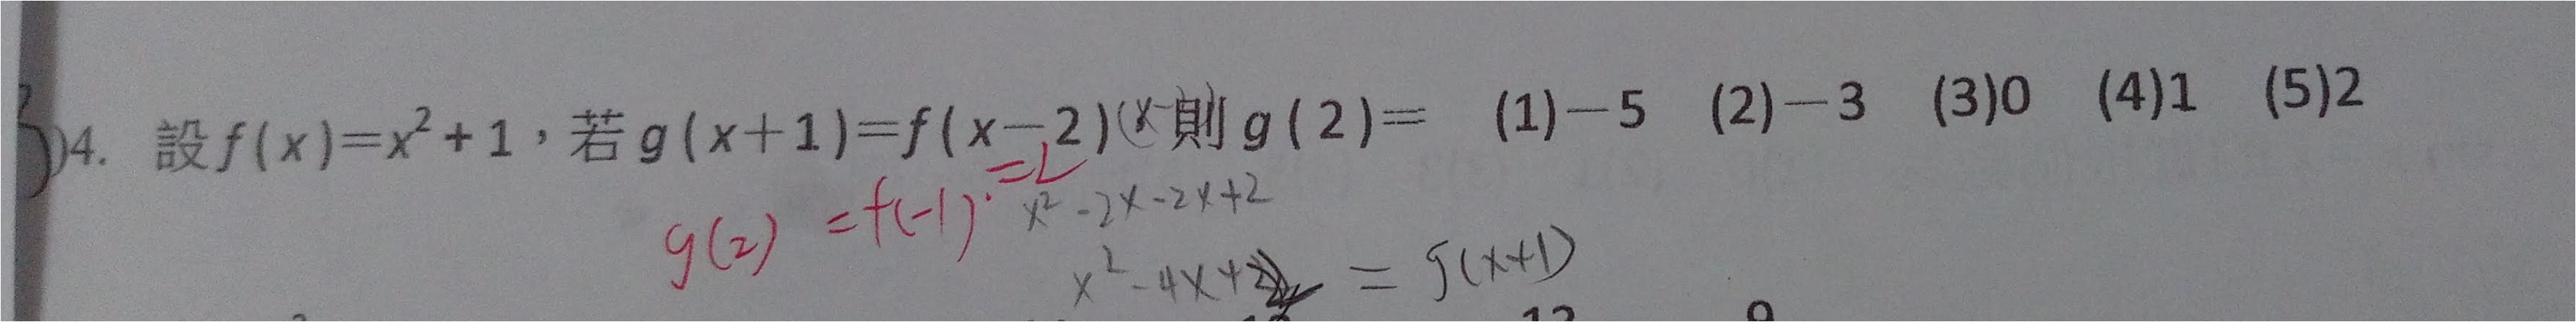 )4. 設f(x)=x²+1，若g(x+1)=f(x−2)(x- 則g(2)= (1)−5 (2)−3 (3)0 (4)1 (5)2
g(2) =f(-1) =2
x²-2x-2x+2
x²-4x+2 = g(x+1)